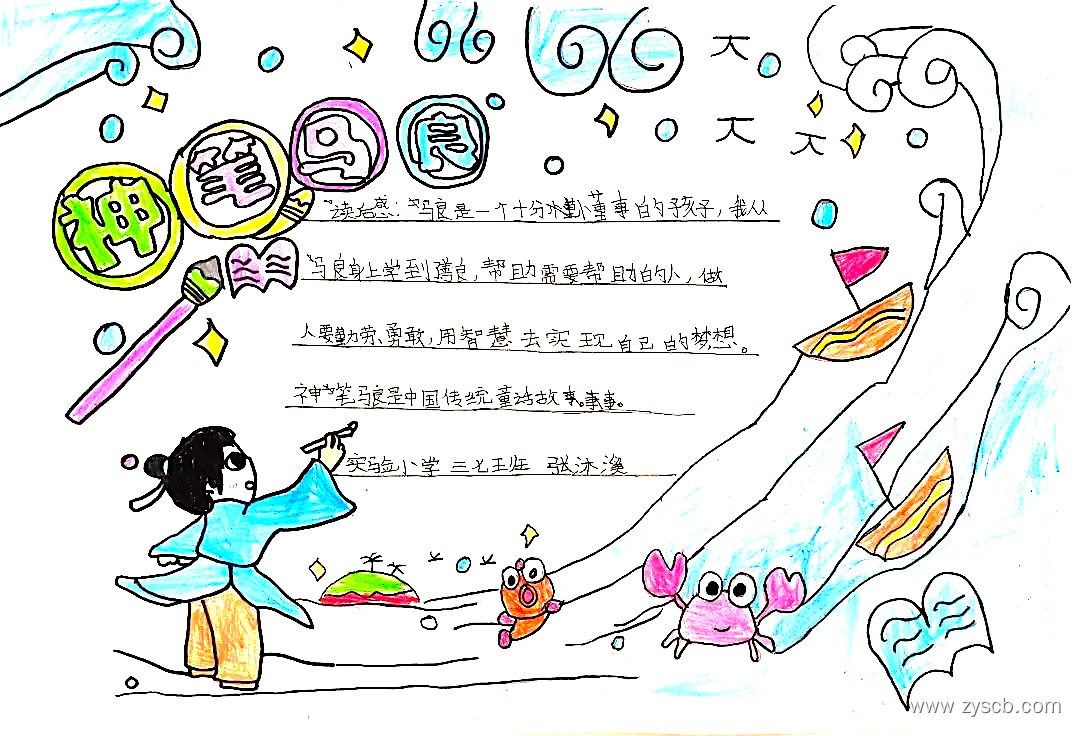 神笔马良
读后感:"马良是一个十分勤董事的孩子,我从
马良身上学到善良,帮助需要帮助的人,做
人要勤劳、勇敢,用智慧去实现自己的梦想。
神笔马良是中国传统童话故事。
实验小学 三七班 张沐溪
www.zyscb.com